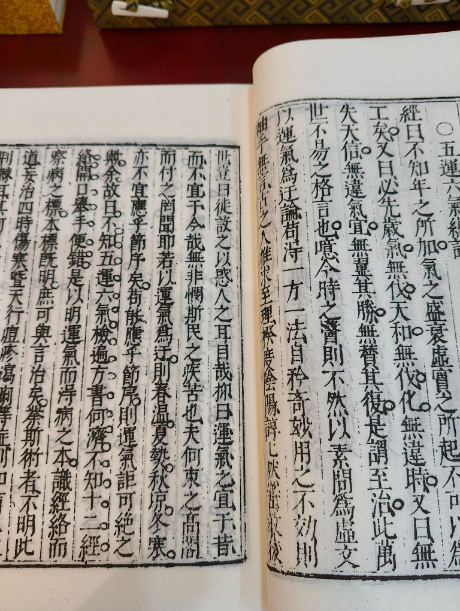 ○五運六氣經
經曰不知年之所加氣之盛衰虛實之所起不可以
工矣又曰必先歲氣無伐天和無伐化無違時又曰無
失天信無違氣宜無翼其勝無贊其復是謂至治此萬
世不易之格言也噫今時之醫則不然以素問為虛文
以運氣為迂論苟得一方一法自矜奇妙用之不效則
無言古之人惟求至理察陰陽
世立日徒設之以惑人之耳目哉抑曰運氣之宜于昔
而不宜于今哉無非憫斯民之疾苦也夫何束之高閣
而付之罔聞耶若以運氣為迂則春温夏熱秋凉冬寒
亦不宜應乎節序矣苟能應乎節序則運氣詎可絶之
與余故曰不知五運六氣檢遍方書何濟不知十二經
絡開口舉手便錯是以明運氣而得病之本識經絡而
察病之標本標既明庶可與言治矣業斯術者不明此
道妄治四時傷寒暨天行瘟疹瀉痢等症何